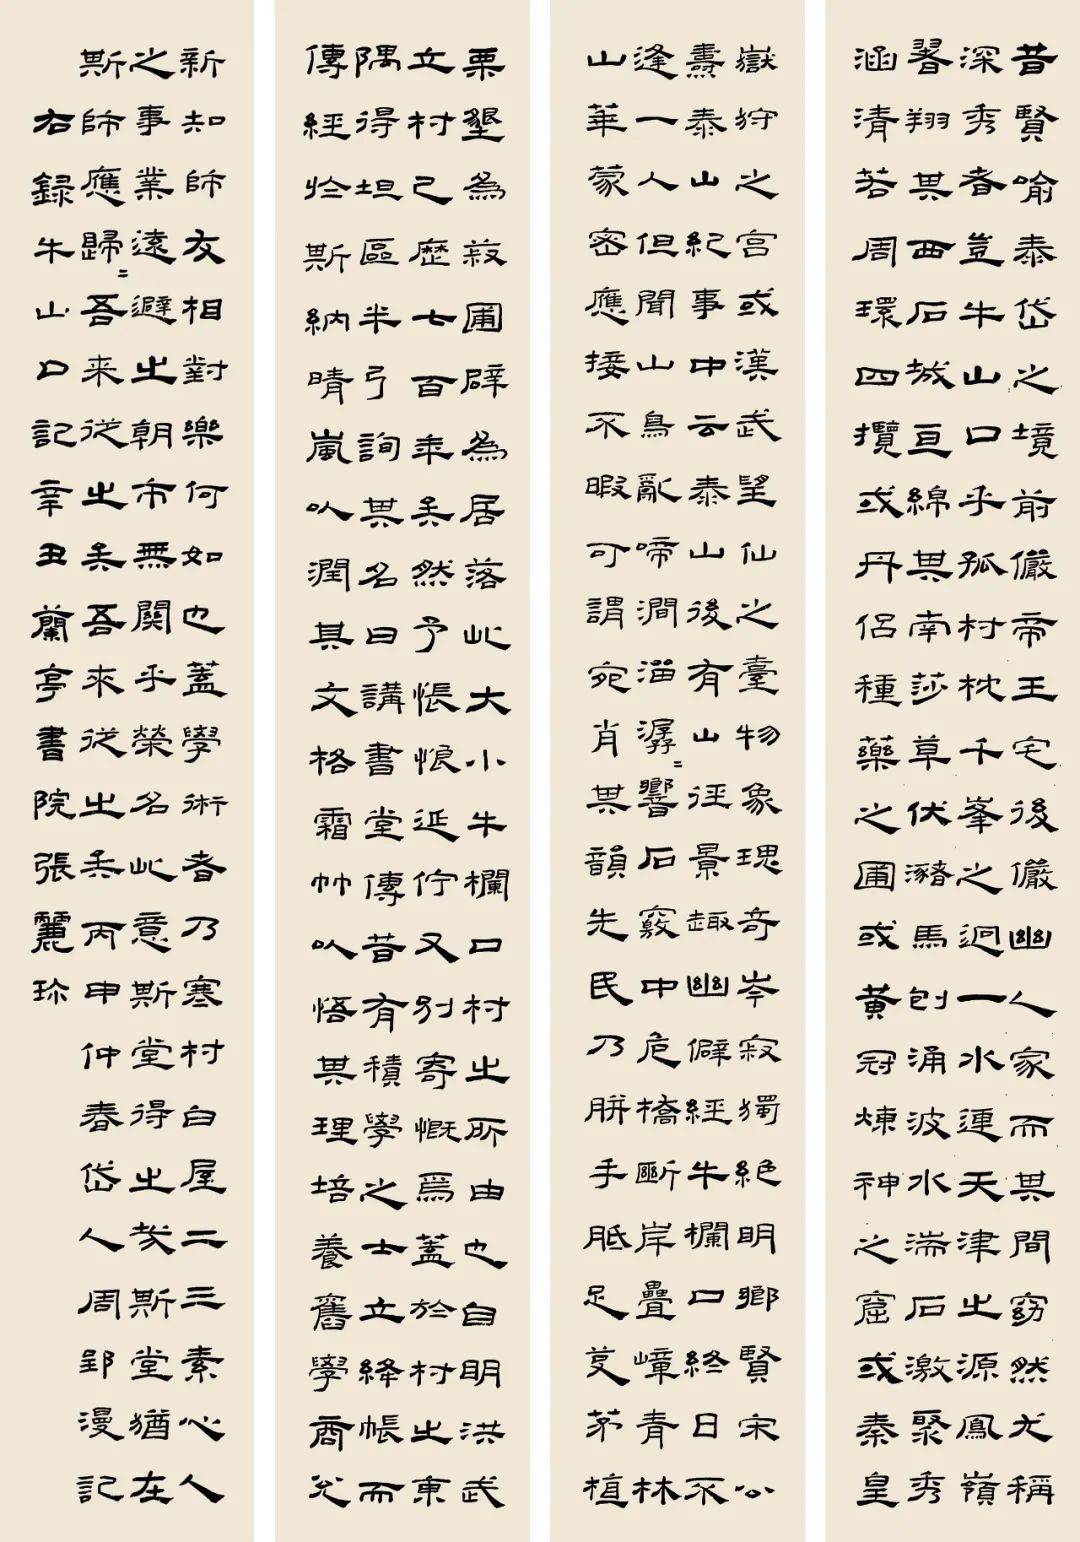 昔賢喻泰岱之境前儼帝王宅後儼幽人家而其間窈然尤稱
深秀者豈牛山口乎孤村枕千峯之迥一水連天津之源鳳嶺
翥翔其西石城亙綿其南莎草伏瀦馬刨涌波水湍石激聚秀
涵清若周環四攬或丹侶種藥之圃或黃冠煉神之窟或秦皇
嶽狩之宮或漢武望仙之臺物象瑰奇岑寂獨絕明鄉賢宋公
燾泰山紀事中云泰山後有山徑景趣幽僻經牛欄口終日不
逢一人但聞山鳥亂啼澗溜潺〻響石竅中危橋斷岸疊嶂青林
山華蒙密應接不暇可謂宛肖其韻先民乃胼手胝足芟茅植
栗墾為菽圃辟為居落此大小牛欄口村之所由也自明洪武
立村已歷七百年矣然予悵悢延佇又別寄慨焉蓋於村之東
隅得坦區半弓詢其名曰講書堂傳昔有積學之士立絳帳而
傳經於斯納晴嵐以潤其文格霜竹以悟其理培養舊學商兌
新知師友相對樂何如也蓋學術者乃寒村白屋二三素心人
之事業遠避之朝市無關乎榮名此意斯堂得之哉斯堂猶在
斯師應歸〻吾来從之矣吾來從之矣丙申仲春岱人周郢漫記
右錄牛山口記辛丑蘭亭書院張麗珍